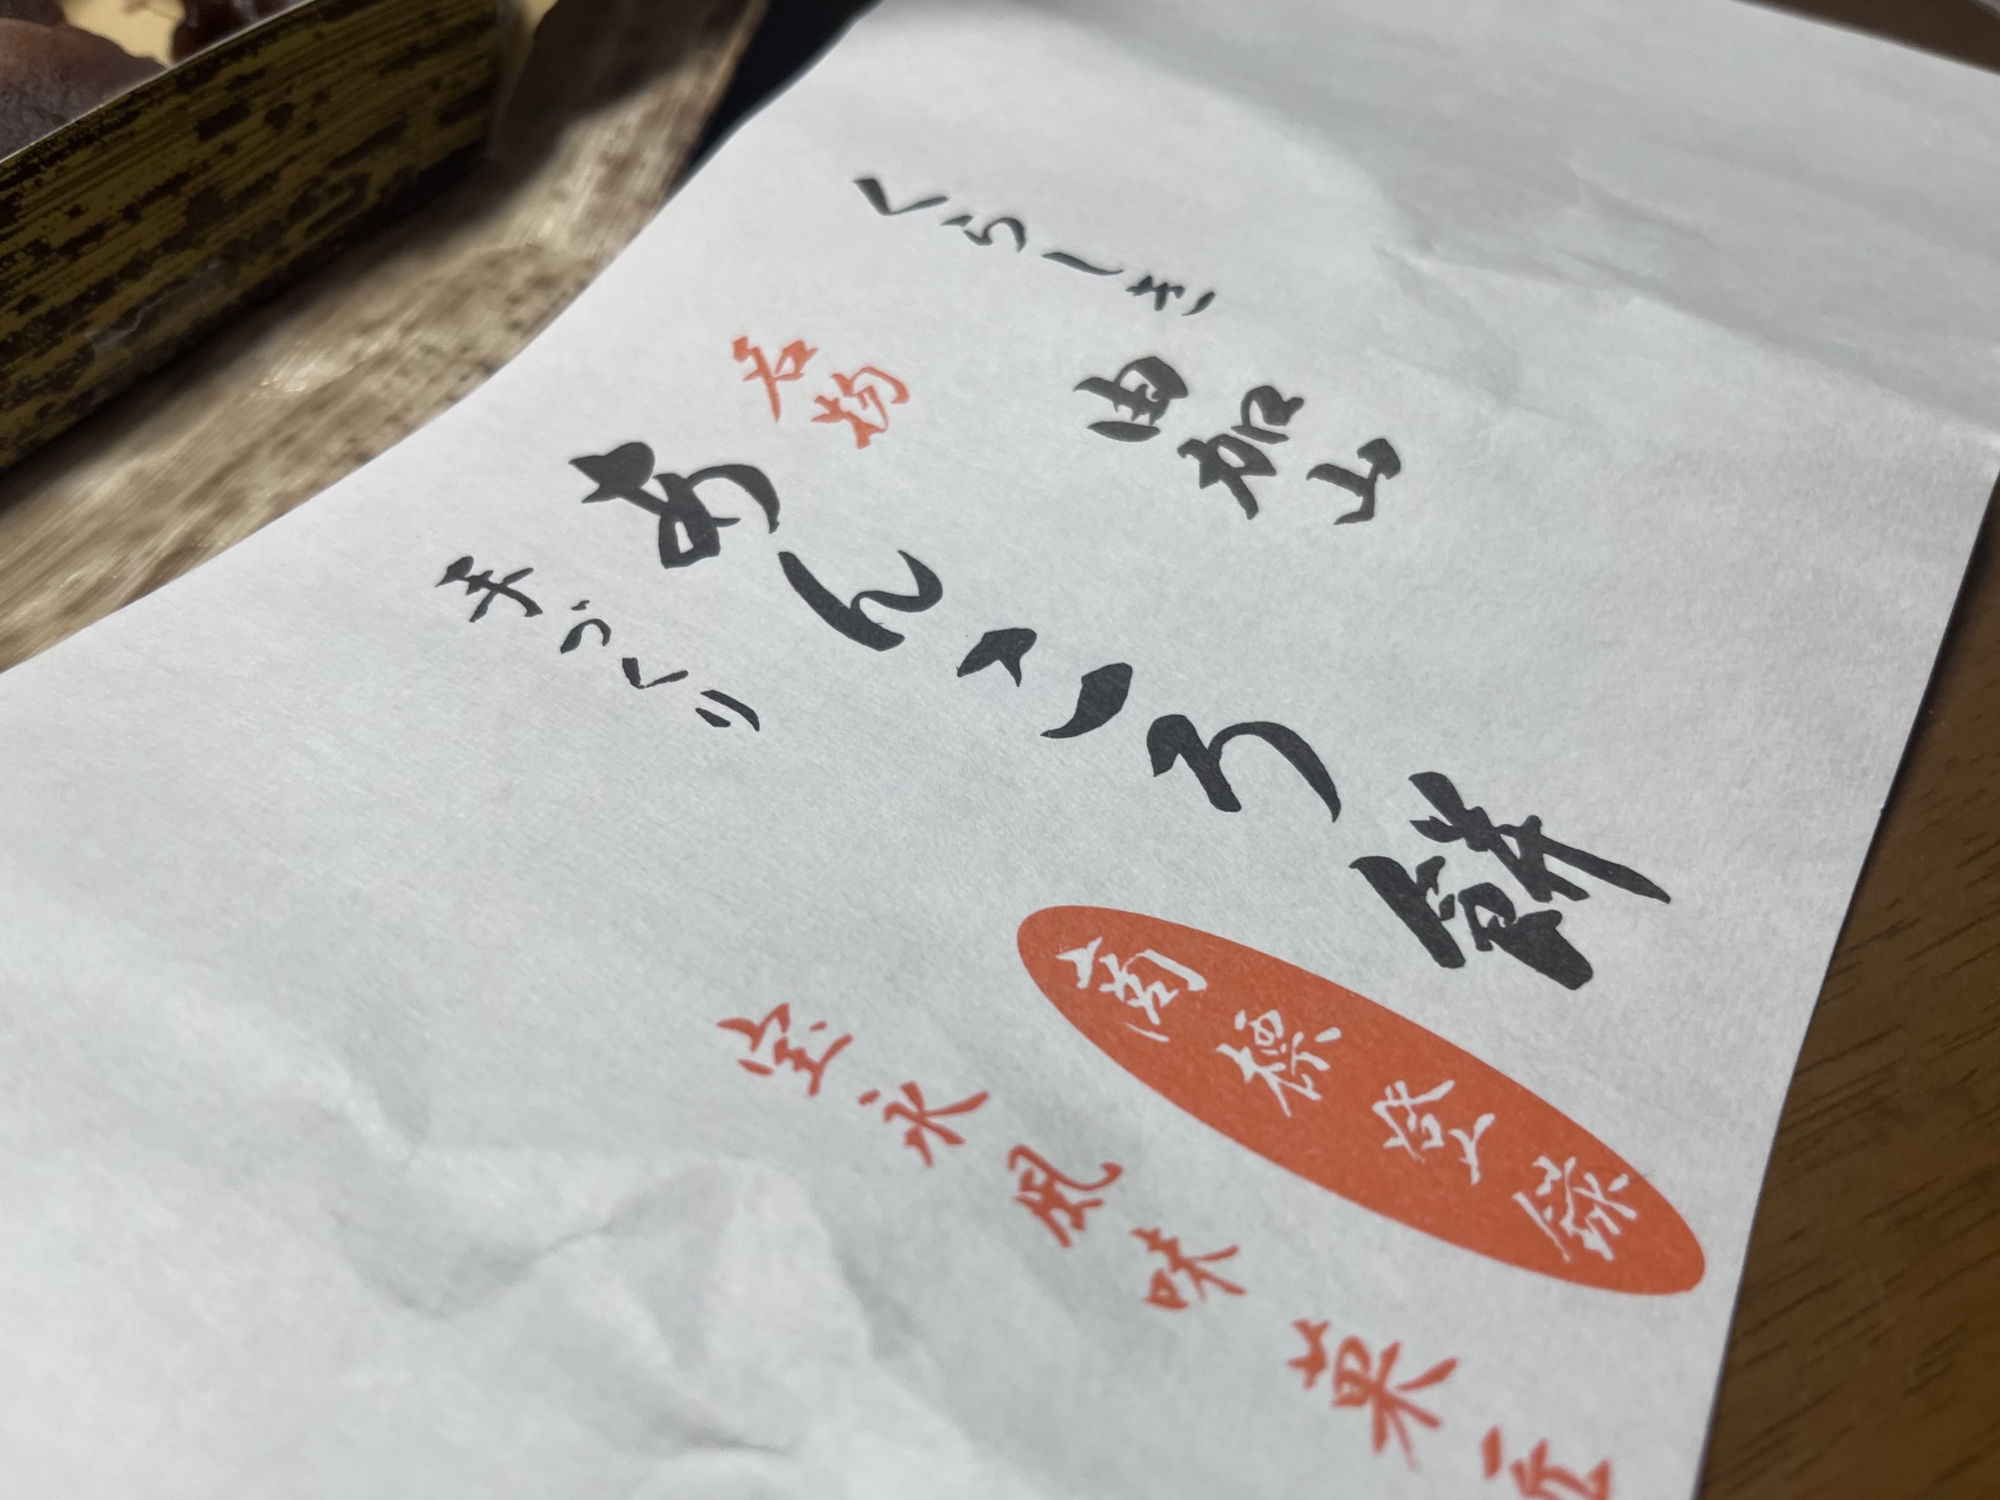 くらしき
由加山
名物
あんころ餅
手づくり
商標登録
宝永風味
菓一匠